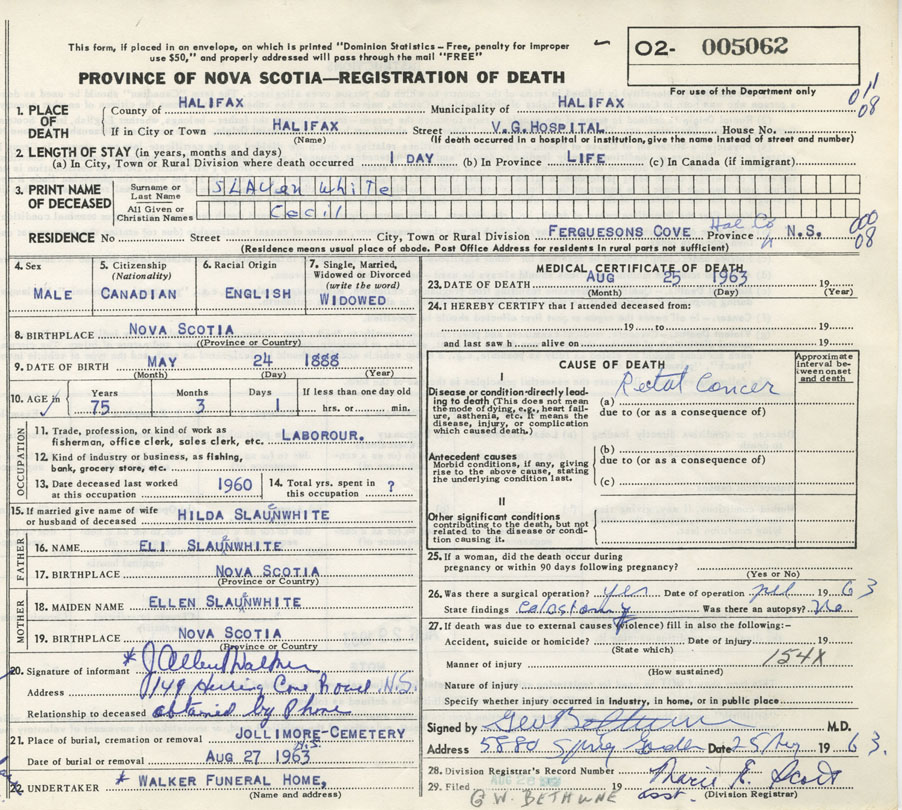 This form, if placed in an envelope, on which is printed "Dominion Statistics – Free, penalty for improper
use $50," and properly addressed will pass through the mail "FREE"
O2- 005062
PROVINCE OF NOVA SCOTIA—REGISTRATION OF DEATH
For use of the Department only
1. PLACE OF DEATH
County of HALIFAX Municipality of HALIFAX 011 08
If in City or Town HALIFAX Street V.G. HOSPITAL House No.
(Name) (If death occurred in a hospital or institution, give the name instead of street and number)
2. LENGTH OF STAY (in years, months and days)
(a) In City, Town or Rural Division where death occurred 1 DAY (b) In Province LIFE (c) In Canada (if immigrant)
3. PRINT NAME OF DECEASED
Surname or Last Name SLAUEN White
All Given or Christian Names Cecil
RESIDENCE No Street City, Town or Rural Division FERGUESONS COVE Hal Co Province N.S. 000 08
(Residence means usual place of abode. Post Office Address for residents in rural parts not sufficient)
4. Sex MALE
5. Citizenship (Nationality) CANADIAN
6. Racial Origin ENGLISH
7. Single, Married, Widowed or Divorced (write the word) WIDOWED
8. BIRTHPLACE NOVA SCOTIA
(Province or Country)
9. DATE OF BIRTH MAY 24 1888
(Month) (Day) (Year)
10. AGE in Years 75 Months 3 Days 1 If less than one day old hrs. or min.
OCCUPATION
11. Trade, profession, or kind of work as fisherman, office clerk, sales clerk, etc. LABOROUR.
12. Kind of industry or business, as fishing, bank, grocery store, etc.
13. Date deceased last worked at this occupation 1960
14. Total yrs. spent in this occupation ?
15. If married give name of wife or husband of deceased HILDA SLAUENWHITE
FATHER
16. NAME ELI SLAUENWHITE
17. BIRTHPLACE NOVA SCOTIA
(Province or Country)
MOTHER
18. MAIDEN NAME ELLEN SLAUENWHITE
19. BIRTHPLACE NOVA SCOTIA
(Province or Country)
20. Signature of informant * J Albert Walker
Address 149 Herring Cove Road N.S.
Relationship to deceased obtained by Phone
21. Place of burial, cremation or removal JOLLIMORE-CEMETERY N.S.
Date of burial or removal AUG 27 1963
22. UNDERTAKER * WALKER FUNERAL HOME,
(Name and address)
MEDICAL CERTIFICATE OF DEATH
23. DATE OF DEATH AUG 25 1963 19
(Month) (Day) (Year)
24. I HEREBY CERTIFY that I attended deceased from:
19 to 19
and last saw h alive on 19
CAUSE OF DEATH
Approximate interval between onset and death
I
Disease or condition directly leading to death (This does not mean the mode of dying, e.g., heart failure, asthenia, etc. It means the disease, injury, or complication which caused death.)
(a) Rectal Cancer
due to (or as a consequence of)
Antecedent causes
Morbid conditions, if any, giving rise to the above cause, stating the underlying condition last.
(b)
due to (or as a consequence of)
(c)
II
Other significant conditions
contributing to the death, but not related to the disease or condition causing it.
25. If a woman, did the death occur during pregnancy or within 90 days following pregnancy?
(Yes or No)
26. Was there a surgical operation? yes Date of operation 19 63
State findings colostomy Was there an autopsy? No
27. If death was due to external causes (violence) fill in also the following:-
Accident, suicide or homicide? Date of injury 19
(State which)
Manner of injury 154X
(How sustained)
Nature of injury
Specify whether injury occurred in Industry, in home, or in public place
Signed by Geo Bethune M.D.
Address 5880 Spring Garden Date 25 Aug 19 63.
28. Division Registrar's Record Number
29. Filed 19 Marie E. Scott
asst. (Division Registrar)
G W. BETHUNE